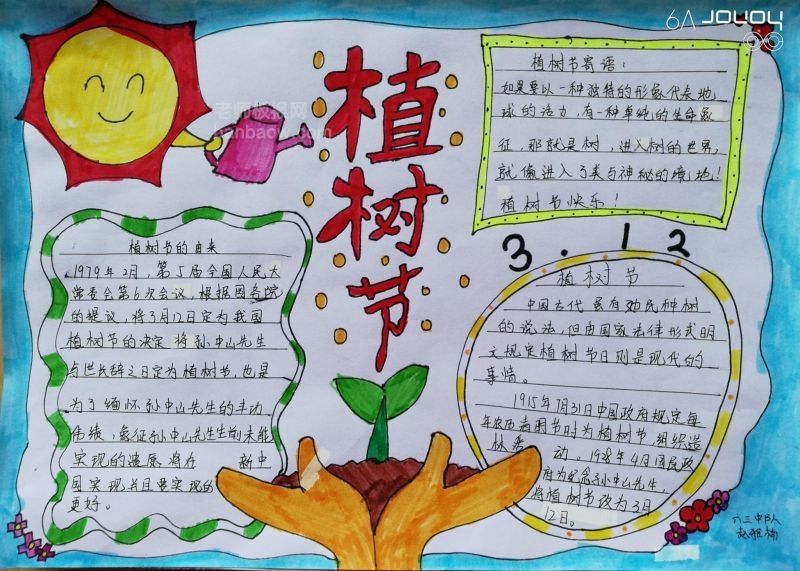 6A JOYOY
老师板报网
banbaow.com
植树节
植树节寄语：
如果要以一种独特的形象代表地
球的活力，有一种单纯的生命象
征，那就是树，进入树的世界，
就像进入了类与神秘的境地！
植树节快乐！
3.12
植树节的由来
1979年2月，第5届全国人民大
常委会第6次会议，根据国务院
的提议，将3月12日定为我国
植树节的决定 将孙中山先生
与世长辞之日定为植树节，也是
为了缅怀孙中山先生的丰功
伟绩，象征孙中山先生生前未能
实现的遗愿 将在 新中
国实现并且要实现的
更好。
植树节
中国古代虽有劝民种树
的说法，但由国家法律形式明
文规定植树节日则是现代的
事情。
1915年7月31日中国政府规定每
年农历清明节时为植树节，组织造
林 动。1928年4月国民政
府为纪念孙中山先生，
将植树节改为3月
12日。
六三中队
赵雅楠